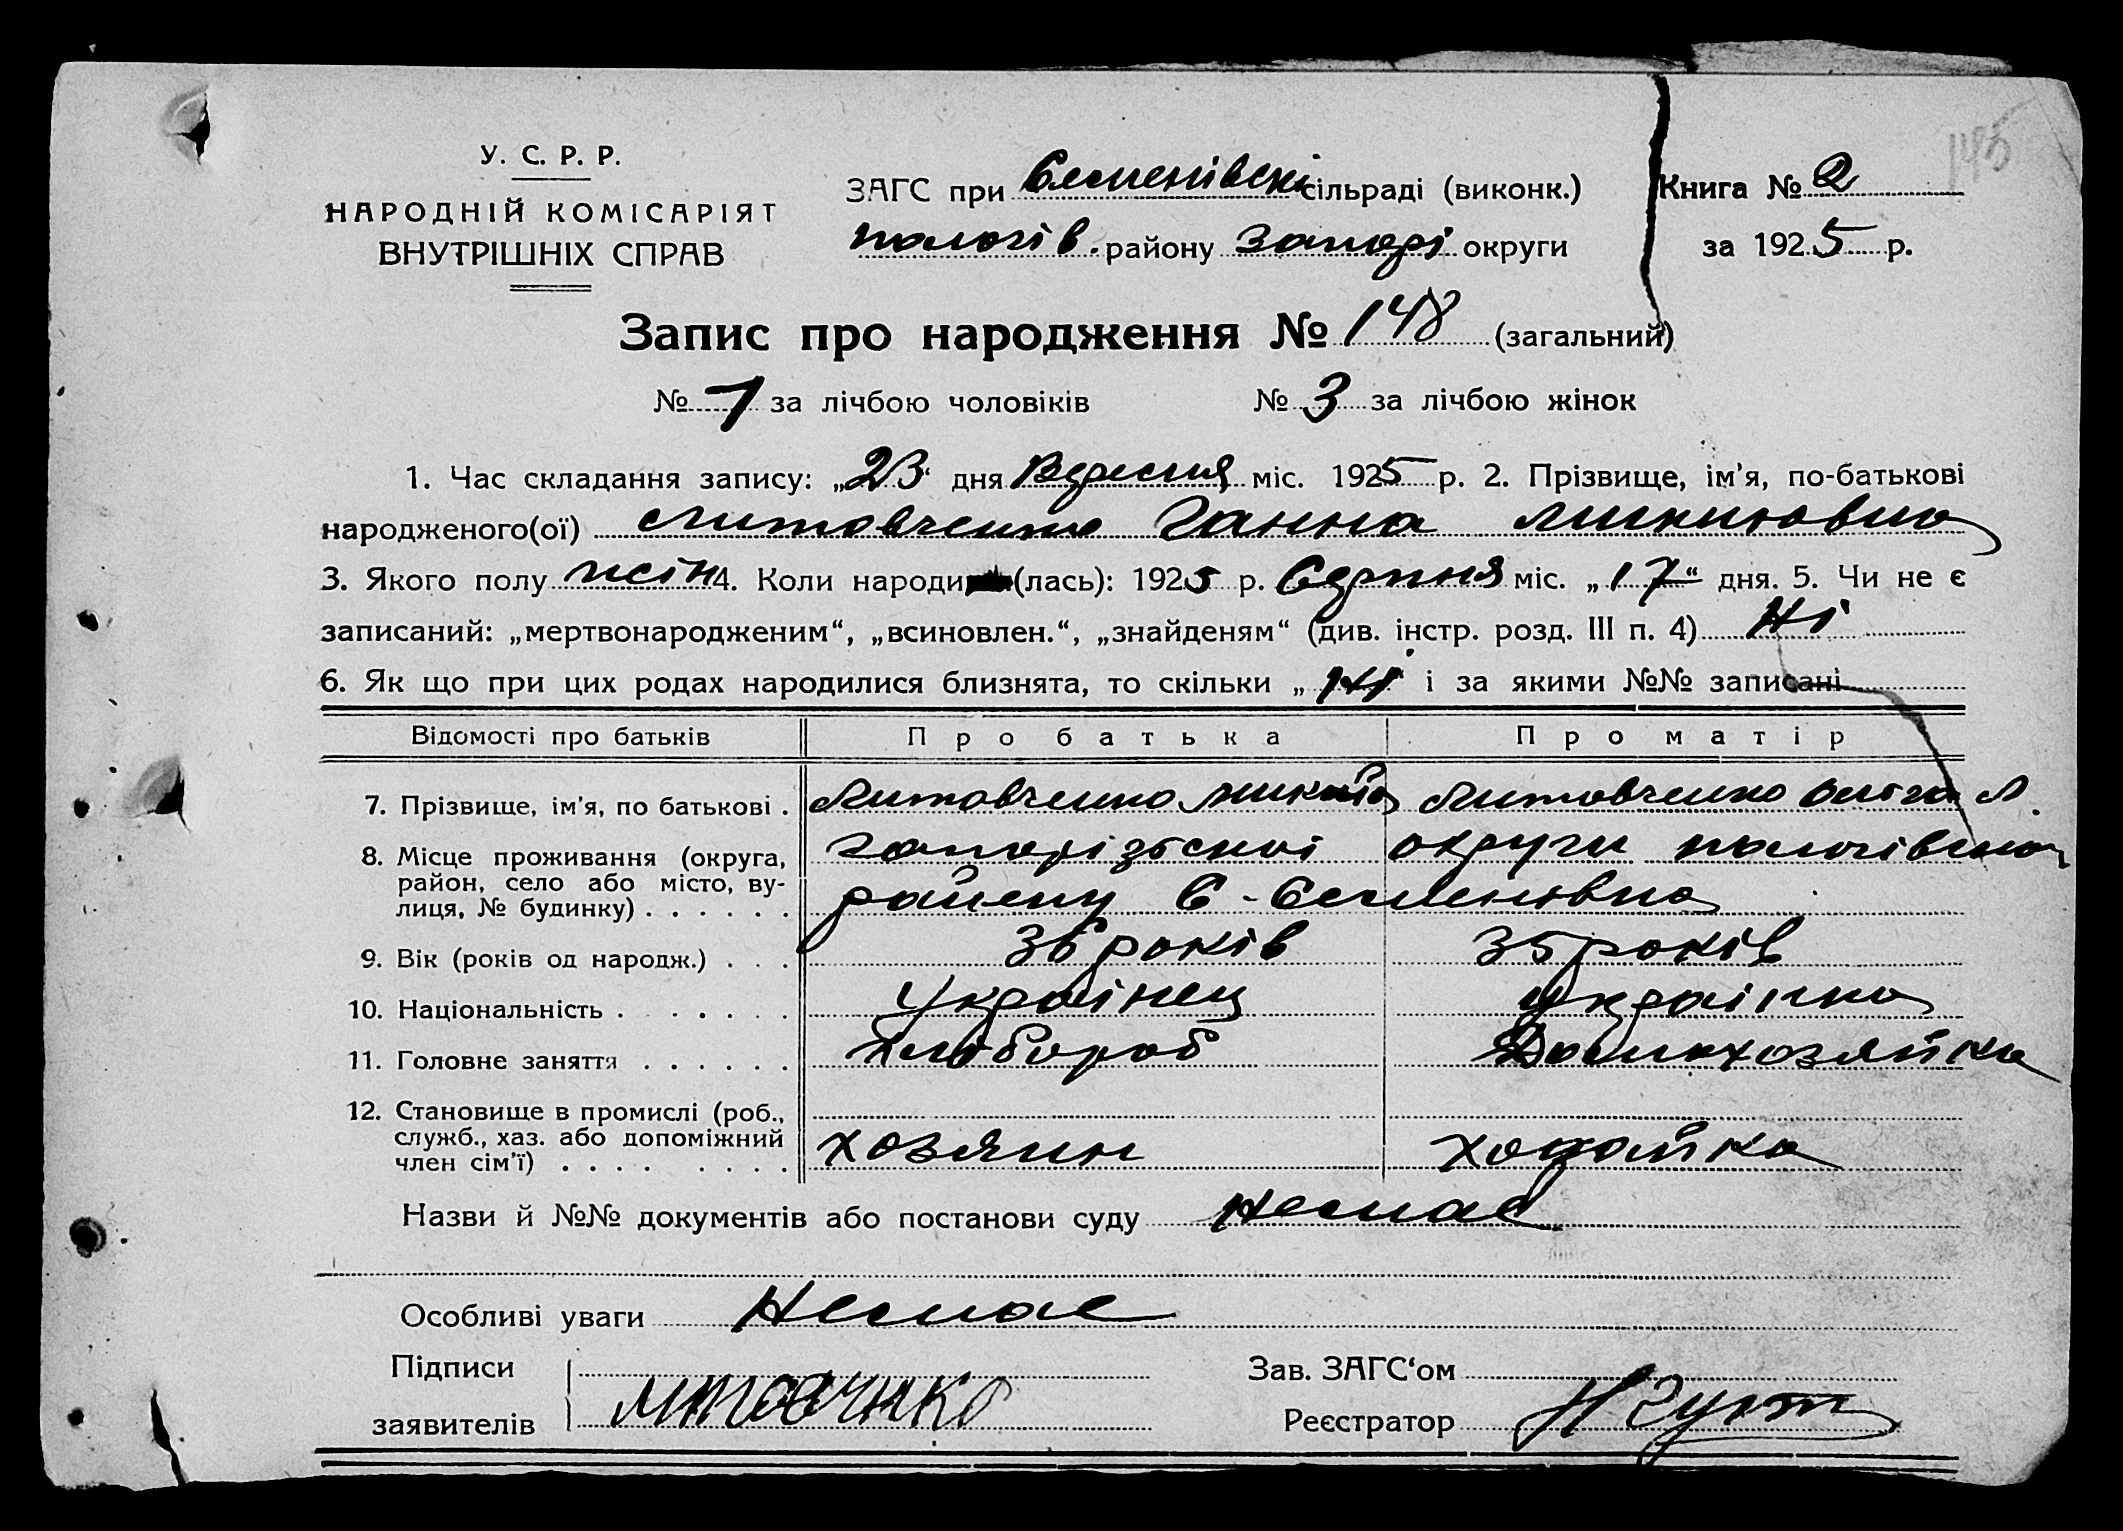 145
У. С. Р. Р.
НАРОДНІЙ КОМІСАРІЯТ
ВНУТРІШНІХ СПРАВ
ЗАГС при Семенівскі сільраді (виконк.)
пологів. району Запорі округи
Книга № 2
за 1925 р.
Запис про народження № 148 (загальний)
№ 7 за лічбою чоловіків № 3 за лічбою жінок
1. Час складання запису: „23“ дня Вересня міс. 1925 р. 2. Прізвище, ім'я, по-батькові
народженого(ої) Литовченко Ганна
3. Якого полу жін 4. Коли народи (лась): 1925 р. Серпня міс. „17“ дня. 5. Чи не є
записаний: „мертвонародженим“, „всиновлен.“, „знайденям“ (див. інстр. розд. III п. 4) Ні
6. Як що при цих родах народилися близнята, то скільки „ні“ і за якими №№ записані
Відомості про батьків Про батька Про матір
7. Прізвище, ім'я, по батькові . Литовченко Микита Литовченко Ольга Л.
8. Місце проживання (округа, район, село або місто, вулиця, № будинку) . . . . . . Запорізської округи
району С-Семенівка
9. Вік (років од народж.) . . . 36 років 35 років
10. Національність . . . . . . . Українець українка
11. Головне заняття . . . . . . хлібороб Домохозяйка
12. Становище в промислі (роб., служб., хаз. або допоміжний член сім'ї) . . . . . . . . хозяин хозяйка
Назви й №№ документів або постанови суду Немае
Особливі уваги Немае
Підписи
заявителів Литовчнко
Зав. ЗАГС'ом
Реєстратор